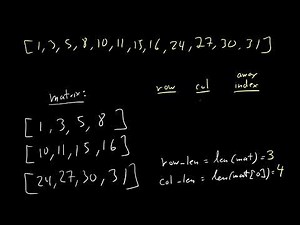 [1,3,5,8,10,11,15,16,24,27,30,31]
row col array index
matrix:
[1,3,5,8]
[10,11,15,16]
[24,27,30,31]
row_len = len(mat) = 3
col_len = len(mat[0]) = 4